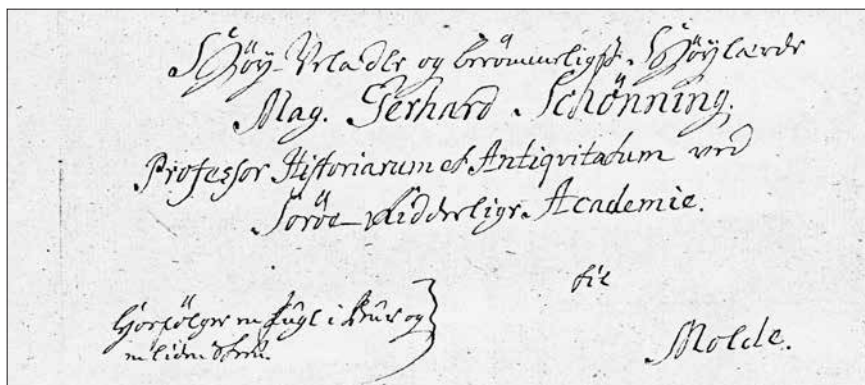 Höÿ-Velædle og berömmeligst. Höÿlærde
Mag. Gerhard Schönning.
Professor Historiarum et Antiqvitatum ved
Soröe Ridderlige Academie.
til
Molde.
Hjorfölger en Fugl i Kruus og
en liden